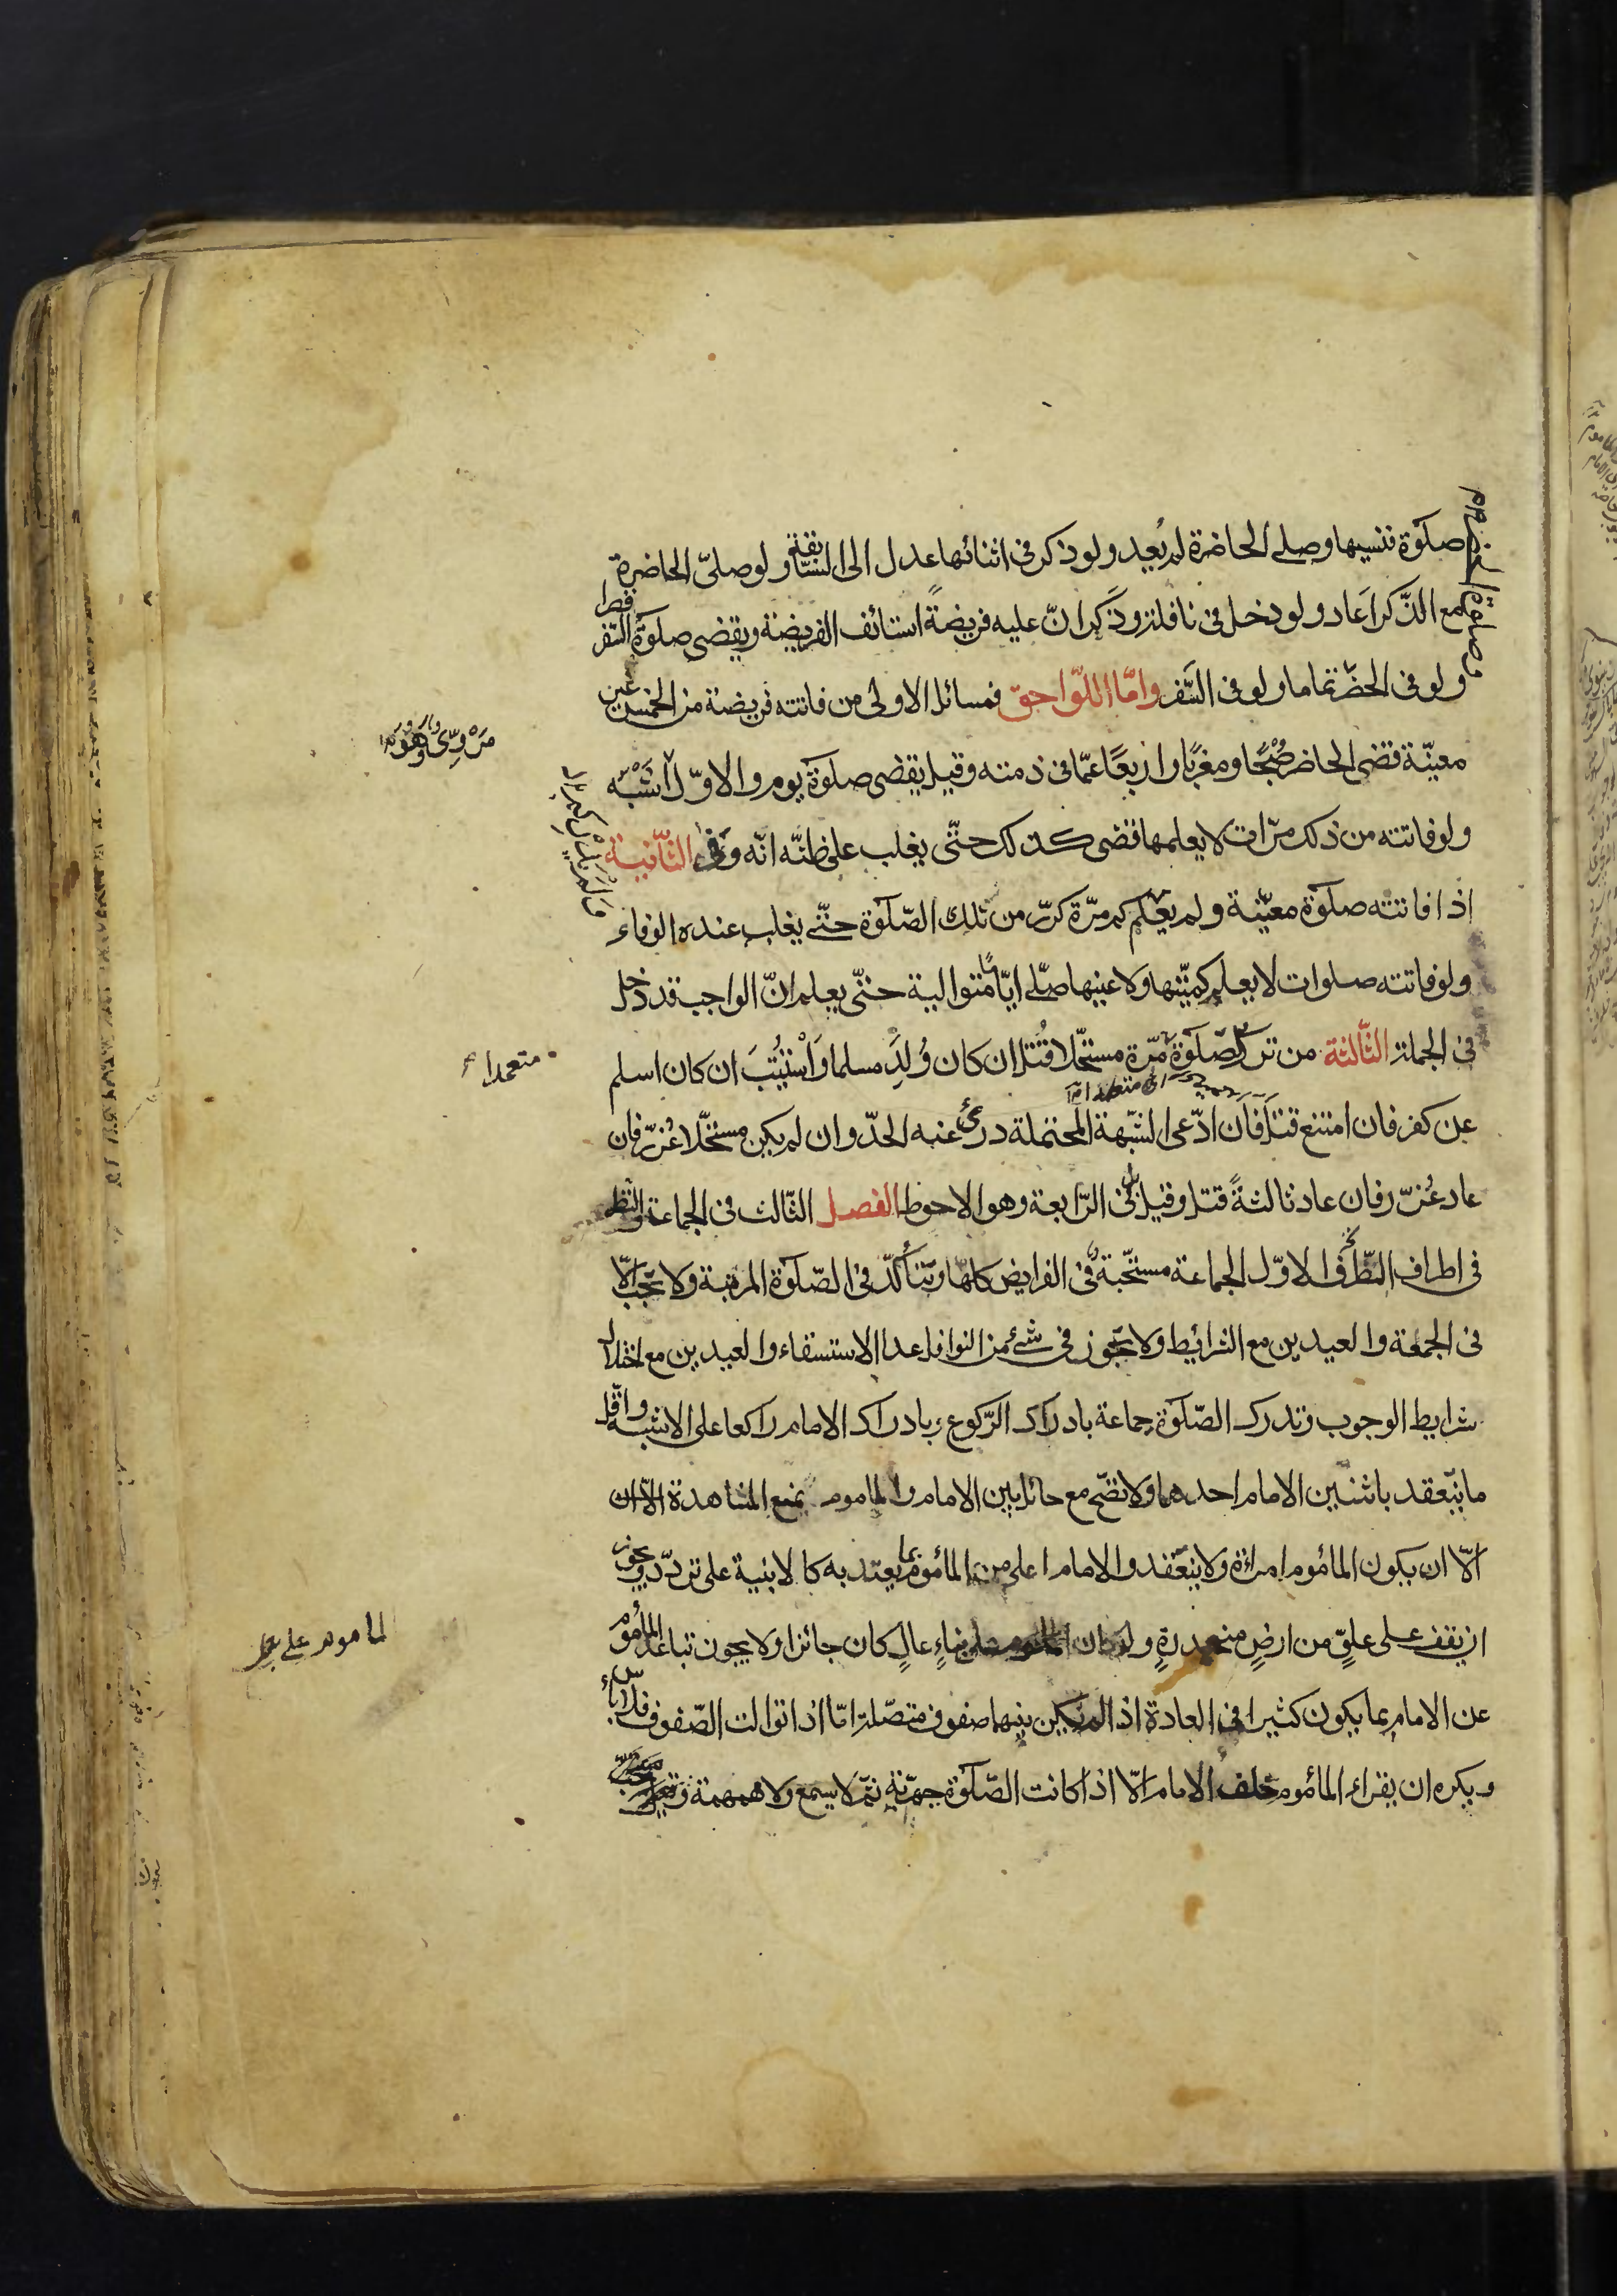 صلوة فنسيها وصلى الحاضرة لم يعد ولو ذكر في اثنائها عدل الى السابقة ولو صلّى الحاضرة
مع الذّكر اَعاد ولو دخل في نافلة وذَكر انّ عليه فريضةً استائف الفريضة ويقضى صلوة السّفر قصرا
ولو في الحضَر تماما ولو في السَّفر وامّا اللّواحق فمسائل الاولى من فاتته فريضة من الخمس غير
معيّنة قضى الحاضر صُبْحًا ومغربًا واربعًا عمّا في ذمته وقيل يقضى صلوة يوم والاوّل اشبه
ولو فاتته من ذلك مرّات لا يعلمها قضى كذلك حتّى يغلب على ظنّه انّه وفى الثّانية
اذا فاتته صلوة معيّنة ولم يعلم كم مرّة كرّر من تلك الصّلوة حتّى يغلب عنده الوفاء
ولو فاتته صلوات لا يعلم كميّتها ولا عينها صلّى ايّامًا متوالية حتّى يعلم انّ الواجب قد دخل
في الجملة الثّالثة من ترك الصّلوة مرّة مستحلّا قُتل ان كان وُلِدَ مسلما وَاسْتُتيبَ ان كان اسلم
عن كفر فان امتنع قتل فان ادّعى الشّبهة المحتملة درئ عنه الحدّ وان لم يكن مستحلّا عُزّر فان
عاد عُزّر فان عاد ثالثةً قتل وقيل بل في الرّابعة وهو الاحوط الفصل الثّالث في الجماعة والنّظر
في اطراف النّظر الاوّل الجماعة مستحبّة في الفرايض كلها وتتأكّد في الصّلوة المرتبة ولا تجب الّا
في الجمعة والعيدين مع الشرائيط ولا تجوز في شئ من النوافل عدا الاستسقاء والعيدين مع اختلال
شرايط الوجوب وتدرك الصّلوة جماعة بادراك الرّكوع وبادراك الامام راكعا على الاشبه واقّل
ما ينعقد باثنين الامام احدهما ولا تصّح مع حائل بين الامام والماموم يمنع المشاهدة الّا ان
الّا ان يكون المأموم امراة ولا ينعقد والامام اعلى من المأموم بما يعتد به كالابنية على تردّد ويجوز
ان يقف على علوّ من ارضٍ منحدرةٍ ولو كان الماموم على بناءٍ عالٍ كان جائزا ولا يجوز تباعد المأموم
عن الامام بما يكون كثيرا في العادة اذا لم يكن بينهما صفوف متصّلة امّا اذا توالت الصّفوف فلا بأس
ويكره ان يقراء المأموم خلف الامام الّا اذا كانت الصّلوة جهريّة ثمّ لا يسمع ولا همهمة وقيل
متعمدا
الماموم على